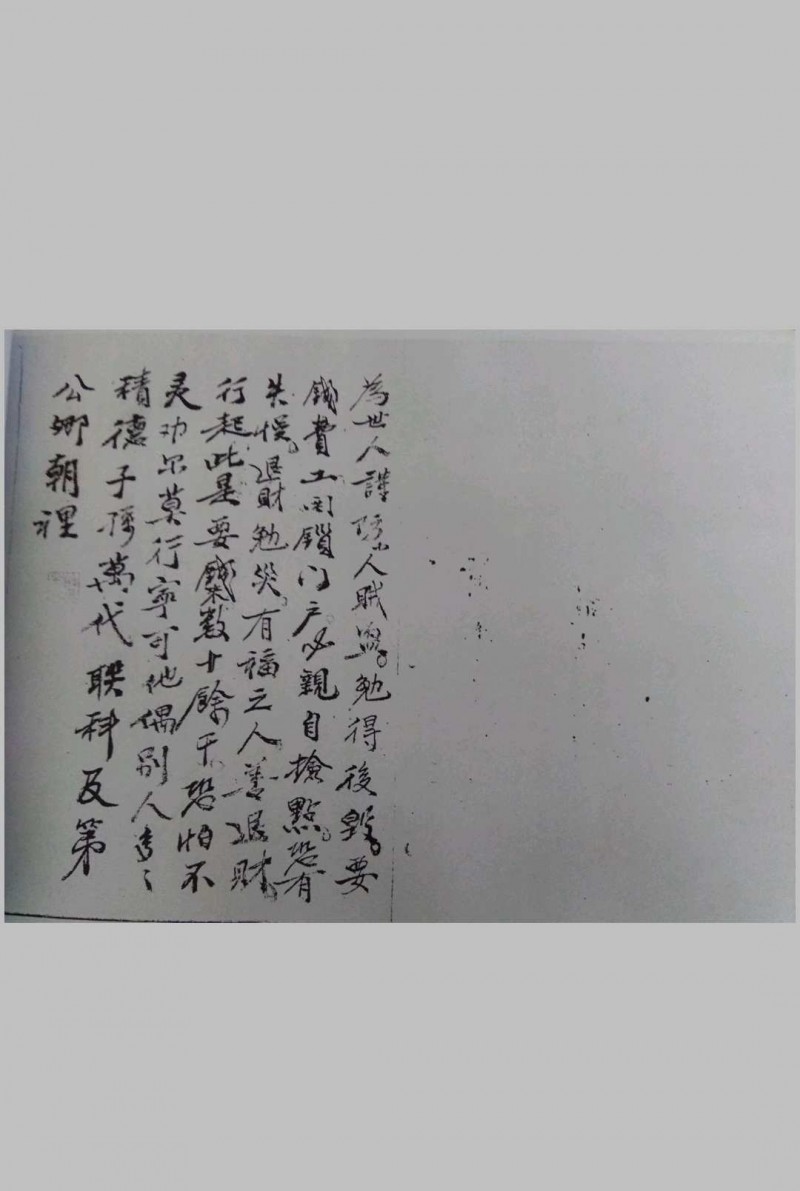 為世人謹防小人賊盜。勉得後毀。要
錢費工関鎖门户必親自撿點。恐有
失悞。退財勉災。有福之人善退財。
行起此是要錢粮数十餘千恐怕不
灵功尔莫行寧可他偶别人
積德子孫萬代联科及第
公卿朝裡